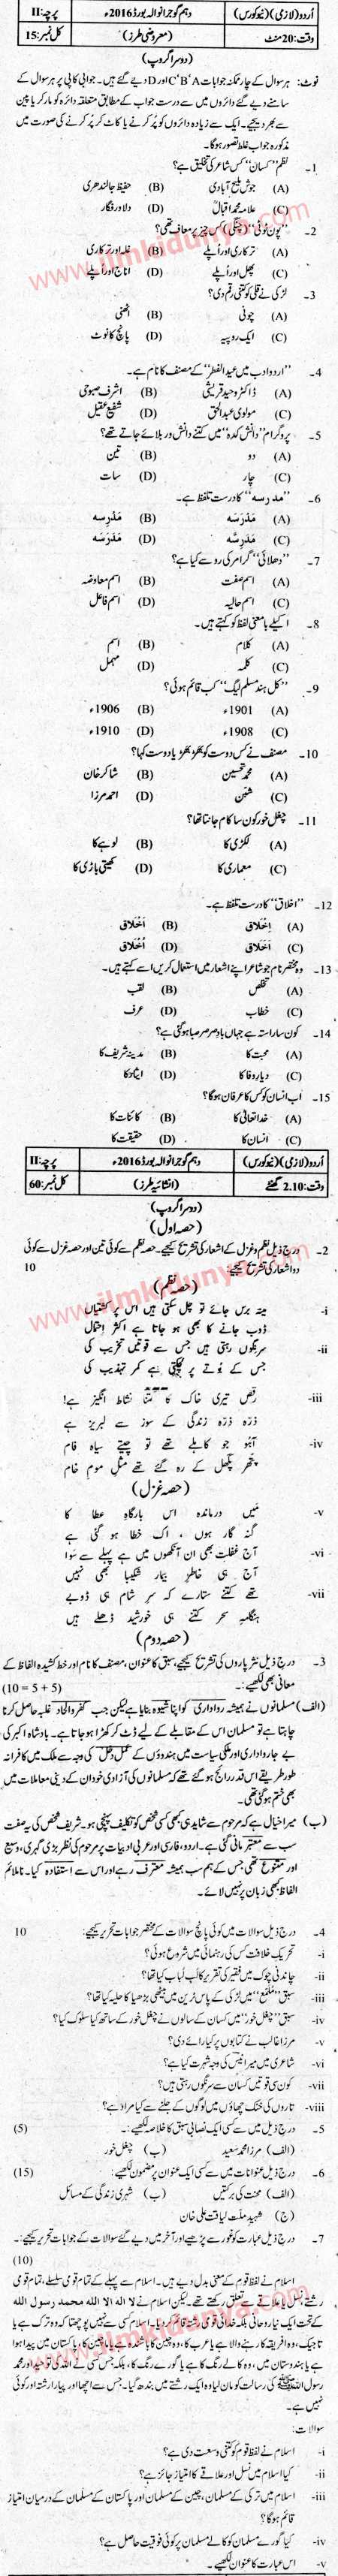 اُردو (لازمی) (نیو کورس) دہم گوجرانوالہ بورڈ 2016ء پرچہ: II
وقت: 20 منٹ (معروضی طرز) کل نمبر: 15
(دوسرا گروپ)
نوٹ: ہر سوال کے چار ممکنہ جوابات C'B'A اور D دیے گئے ہیں۔ جوابی کاپی پر ہر سوال کے
سامنے دیے گئے دائروں میں سے درست جواب کے مطابق متعلقہ دائرہ کو مارکر یا پین
سے بھر دیجیے۔ ایک سے زیادہ دائروں کو پُر کرنے یا کاٹ کر پُر کرنے کی صورت میں
مذکورہ جواب غلط تصور ہو گا۔
1۔ نظم "کسان" کس شاعر کی تخلیق ہے؟
(A) جوش ملیح آبادی (B) حفیظ جالندھری
(C) علامہ محمد اقبالؒ (D) دلاور فگار
(A) ترکاری اور اُپلے (B) غلہ اور ترکاری
(C) پھل اور اُپلے (D) اناج اور اُپلے
3۔ لڑکی نے قلی کو کتنی رقم دی؟
(A) چونی (B) اٹھنی
(C) ایک روپیہ (D) پانچ کا نوٹ
4۔ "اردو ادب میں عید الفطر" کے مصنف کا نام ہے۔
(A) ڈاکٹر وحید قریشی (B) اشرف صبوحی
(C) مولوی عبدالحق (D) شفیع عقیل
5۔ پروگرام "دانش کدہ" میں کتنے دانش ور بلائے جاتے تھے؟
(A) دو (B) تین
(C) چار (D) سات
6۔ "مدرسہ" کا درست تلفظ ہے۔
7۔ "دھلائی" گرامر کی رو سے کیا ہے؟
(A) اسم صفت (B) اسم معاوضہ
(C) اسم حالیہ (D) اسم فاعل
8۔ اکیلے با معنی لفظ کو کہتے ہیں۔
(A) کلام (B) اسم
(C) کلمہ (D) مہمل
9۔ "کل ہند مسلم لیگ" کب قائم ہوئی؟
(A) 1901ء (B) 1906ء
(C) 1908ء (D) 1910ء
10۔ مصنف نے کس دوست کو بھڑبھڑیا دوست کہا؟
(A) محمد تحسین (B) شاکر خان
(C) شفن (D) احمد مرزا
11۔ چغل خور کون سا کام جانتا تھا؟
(A) لکڑی کا (B) لوہے کا
(C) معماری کا (D) کھیتی باڑی کا
12۔ "اخلاق" کا درست تلفظ ہے۔
13۔ وہ مختصر نام جو شاعر اپنے اشعار میں استعمال کریں اسے کہتے ہیں۔
(A) تخلص (B) لقب
(C) خطاب (D) عرف
14۔ کون سا راستہ ہے جہاں باد صرصر صبا ہو گئی ہے؟
(A) محبت کا (B) مدینہ شریف کا
(C) دیارِ وفا کا (D) ایثار کا
15۔ اب انسان کو کس کا عرفان ہو گا؟
(A) خدا تعالیٰ کا (B) کائنات کا
(C) انسان کا (D) حقیقت کا
اُردو (لازمی) (نیو کورس) دہم گوجرانوالہ بورڈ 2016ء پرچہ: II
وقت: 2.10 گھنٹے (انشائیہ طرز) کل نمبر: 60
(دوسرا گروپ)
(حصہ اول)
2۔ درج ذیل نظم و غزل کے اشعار کی تشریح کیجیے۔ حصہ نظم سے کوئی تین اور حصہ غزل سے کوئی
دو اشعار کی تشریح کیجیے: 10
(حصہ نظم)
i- مینہ برس جائے تو چل سکتی ہیں اس پر کشتیاں
ڈوب جانے کا بھی ہو جاتا ہے اکثر احتمال
ii- سرنگوں رہتی ہیں جس سے قوتیں تخریب کی
جس کے بوتے پر لچکتی ہے کمر تہذیب کی
iii- رقص تیری خاک کا کتنا نشاط انگیز ہے!
ذرّہ ذرّہ زندگی کے سوز سے لبریز ہے
iv- آہو جو کاہلے تھے تو چیتے سیاہ فام
پتھر پگھل کے رہ گئے تھے مثلِ موم خام
(حصہ غزل)
v- میں درماندہ اس بارگاہِ عطا کا
گنہ گار ہوں، اک خطا ہو گئی ہے
vi- آج غفلت بھی ان آنکھوں میں ہے پہلے سے سوا
آج ہی خاطرِ بیمار شکیبا بھی نہیں
vii- تھے کتنے ستارے کہ سرِ شام ہی ڈوبے
ہنگامِ سحر کتنے ہی خورشید ڈھلے ہیں
(حصہ دوم)
3۔ درج ذیل نثر پاروں کی تشریح کیجیے، سبق کا عنوان، مصنف کا نام اور خط کشیدہ الفاظ کے
معانی بھی لکھیے:۔ (5 + 5 = 10)
(الف) مسلمانوں نے ہمیشہ رواداری کو اپنا شیوہ بنایا ہے لیکن جب کفر و الحاد غلبہ حاصل کرنا
چاہتا ہے تو مسلمان اس کے مقابلے کے لیے ڈٹ کر کھڑا ہو جاتا ہے۔ بادشاہ اکبر کی
بے جا رواداری اور ملکی سیاست میں ہندوؤں کے عمل دخل کی وجہ سے ملک میں کافرانہ
طور طریقے اس قدر رائج ہو گئے تھے کہ مسلمانوں کی آزادی خود ان کے دینی معاملات میں
بھی ختم ہو گئی تھی۔
(ب) میرا خیال ہے کہ مرحوم سے شاید ہی کبھی کسی شخص کو تکلیف پہنچی ہو۔ شریف شخص کی یہ صفت
سب سے معتبر مانی گئی ہے۔ اردو، فارسی اور عربی ادبیات پر مرحوم کی نظر بڑی گہری، وسیع
اور متنوع تھی جس کے ہم سب ہمیشہ معترف رہے اور اس سے استفادہ کیا۔ ناملائم
الفاظ بھی زبان پر نہیں لائے۔
4۔ درج ذیل سوالات میں کوئی پانچ سوالات کے مختصر جوابات تحریر کیجیے: 10
i- تحریک خلافت کس کی رہنمائی میں شروع ہوئی؟
ii- چاندنی چوک میں فقیر کی تقریر کا لب لباب کیا تھا؟
iii- سبق "ملمع" میں لڑکی کے پاس ٹرین میں بیٹھی بڑھیا کا حلیہ کیا تھا؟
iv- سبق "چغل خور" میں کسان کے سالوں نے چغل خور کے ساتھ کیا سلوک کیا؟
v- مرزا غالب نے کتابوں پر کیا رائے دی؟
vi- شاعری میں میر انیس کی وجہ شہرت کیا ہے؟
vii- کون سی قوتیں کسان سے سرنگوں رہتی ہیں؟
viii- تاروں کی خنک چھاؤں میں لوگوں کے جلنے سے کیا مراد ہے؟
5۔ درج ذیل میں سے کسی ایک نصابی سبق کا خلاصہ لکھیے: (5)
(الف) مرزا محمد سعید (ب) چغل خور
6۔ درج ذیل عنوانات میں سے کسی ایک عنوان پر مضمون لکھیے: (15)
(الف) محنت کی برکتیں (ب) شہری زندگی کے مسائل
(ج) شہید ملت لیاقت علی خان
7۔ درج ذیل عبارت کو غور سے پڑھیے اور آخر میں دیے گئے سوالات کے جوابات تحریر کیجیے:۔
(10)
اسلام نے لفظ قوم کے معنی بدل دیے ہیں۔ اسلام سے پہلے کے تمام قومی سلسلے، تمام قومی
رشتے نسل یا علاقے سے تعلق رکھتے تھے۔ لیکن اسلام نے لا الہ الا اللہ محمد رسول اللہ
کے تحت ایک نیا روحانی بلکہ خدائی قومی رشتہ قائم کر دیا۔ اسلام کسی سے نہیں پوچھتا کہ وہ ترک ہے یا
تاجیک، وہ افریقہ کا رہنے والا ہے یا عرب کا، وہ چین کا باشندہ ہے یا ماچین کا، پاکستان میں پیدا ہوا
ہے یا ہندوستان میں، وہ کالے رنگ کا ہے یا گورے رنگ کا، بلکہ جس کسی نے اللہ کی توحید اور محمد
رسول اللہ ﷺ کی رسالت کو مان لیا وہ ایک رشتے میں بندھ گیا۔ جس سے اچھا اور پیارا رشتہ اور کوئی
نہیں ہے۔
سوالات:
i- اسلام نے لفظ قوم کو کتنی وسعت دی ہے؟
ii- کیا اسلام میں نسل اور علاقے کا امتیاز جائز ہے؟
iii- اسلام میں ترکی کے مسلمان، چین کے مسلمان اور پاکستان کے مسلمان کے درمیان امتیاز
قائم ہو گا؟
iv- کیا گورے مسلمان کو کالے مسلمان پر کوئی فوقیت حاصل ہے؟
v- اس عبارت کا عنوان لکھیے۔
www.ilmkidunya.com